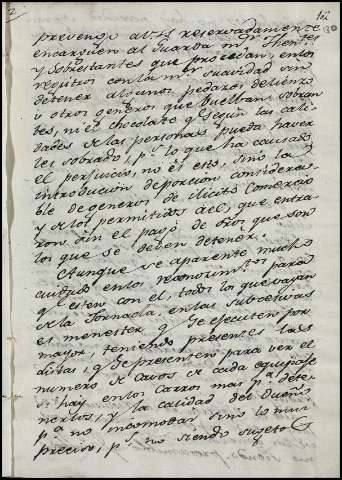 2 16
prevengo a V.S. reservadamente
encarguen al Guarda mr. Then.tes
y Sobrestantes que procedan, en los
registros con la mr. suavidad sin
detener algunos pedazos de lienzo
u otros generos que buelban sobran
tes, ni el chocolate q segun las cali
dades de las personas pueda haver
les sobrado; ps. lo que ha causado
el perjuicio, no es esto, sino la
introducion de porcion considera
ble de generos de ilicito Comercio
y de los permitidos del, que entra
ron sin el pago de dros que son
los que se deben detener.
Aunque se aparente mucho
cuidado en los reconocim.tos para
q esten con el, todos los que vayan
de la Jornada, en las subcesivas
es menester q se egecuten por
mayor, teniendo presentes las
listas, q se presenten para ver el
numero de Cavos de cada equipage
si hay en los Carros mas pa. dete-
nerlos, y la calidad del Dueño
pa. no incomodar sino lo mui
preciso, ps. no siendo sugeto